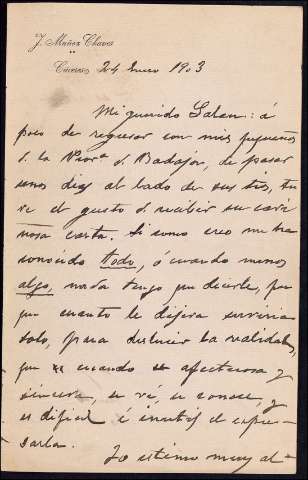 J. Muñoz Chaves
Cáceres, 24 Enero 1903
Mi querido Galan: á
poco de regresar con mis pequeños
de la Prov.ª d. Badajoz, de pasar
unos dias al lado de sus tios, tu
ve el gusto d recibir su cari
ñosa carta. Si como creo me ha
conocido todo, ó cuando menos
algo, nada tengo que decirle, por
que cuanto le dijera serviria
solo, para deslucir la realidad,
que cuando es afectuosa y
sincera, se vé, se conoce, y
es dificil é inutil el expre
sarla.
Lo estimo muy al